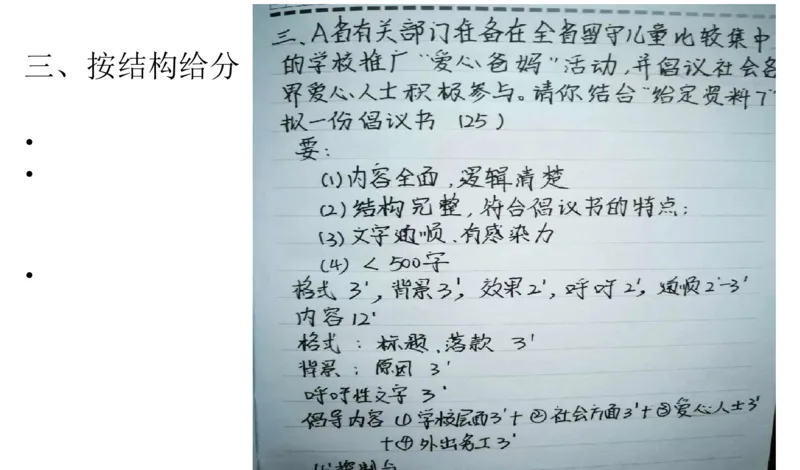 三、按结构给分
三、A省有关部门准备在全省留守儿童比较集中
的学校推广“爱心爸妈”活动，并倡议社会各
界爱心人士积极参与。请你结合“给定资料7”
拟一份倡议书 (25)
要：
(1)内容全面，逻辑清楚
(2)结构完整，符合倡议书的特点；
(3)文字通顺、有感染力
(4) < 500字
格式 3'，背景3'，效果2'，呼吁2'，通顺2'-3'
内容12'
格式：标题、落款 3'
背景：原因 3'
呼吁性文字 3'
倡导内容 (1)学校层面3'+②社会方面3'+③爱心人士3'
+④外出务工3'